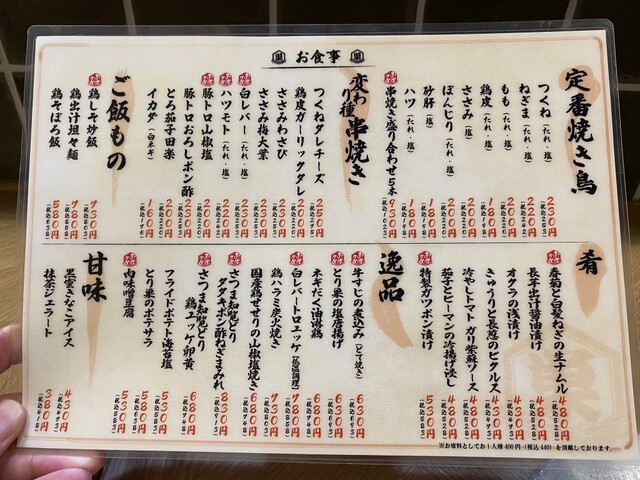 お食事
定番焼き鳥
つくね（たれ・塩） 230円 (税込253)
ねぎま（たれ・塩） 200円 (税込220)
もも（たれ・塩）
鶏皮（たれ・塩） 180円 (税込198)
ささみ（塩） 200円 (税込220)
ぼんじり（塩） 200円 (税込220)
砂肝（塩） 180円 (税込198)
ハツ（たれ・塩） 180円 (税込198)
串焼き盛り合わせ5本 930円
変わり種串焼き
つくねダレチーズ 250円
鶏皮ガーリックダレ 200円
ささみわさび
ささみ梅大葉
白レバー（たれ・塩）
ハツモト（たれ・塩） 200円 (税込220)
豚トロ山椒塩
豚トロおろしポン酢 230円
とろ茄子田楽 200円 (税込220)
イカダ（白ネギ） 160円
ご飯もの
鶏しそ炒飯 730円
鶏出汁坦々麺 780円 (税込858)
鶏そぼろ飯 580円 (税込638)
肴
春菊と白髪ねぎの生ナムル 480円 (税込528)
長芋出汁醤油漬け 480円 (税込528)
オクラの浅漬け 430円 (税込473)
きゅうりと長葱のピクルス 430円 (税込473)
冷やしトマト ガリ紫蘇ソース 480円 (税込528)
茄子とピーマンの冷揚げ浸し 480円 (税込528)
特製ガツポン漬け 530円 (税込583)
逸品
牛すじの煮込み（どて焼き） 630円 (税込693)
とり巣の塩唐揚げ 630円 (税込693)
ネギだく油淋鶏 680円 (税込748)
白レバートロユッケ（低温調理） 780円
鶏ハラミ炭火焼き 730円
国産鶏せせりの山椒塩焼き 680円 (税込748)
さつま知覧どり
タタキポン酢ねぎまみれ 830円 (税込913)
さつま知覧どり
鶏ユッケ卵黄 680円 (税込748)
フライドポテト海苔塩 530円 (税込583)
とり巣のポテサラ 580円
肉味噌豆腐 530円
甘味
黒蜜きなこアイス 430円 (税込473)
抹茶ジェラート 380円 (税込418)
※お席料としてお1人様400円(税込440)を頂戴しております。